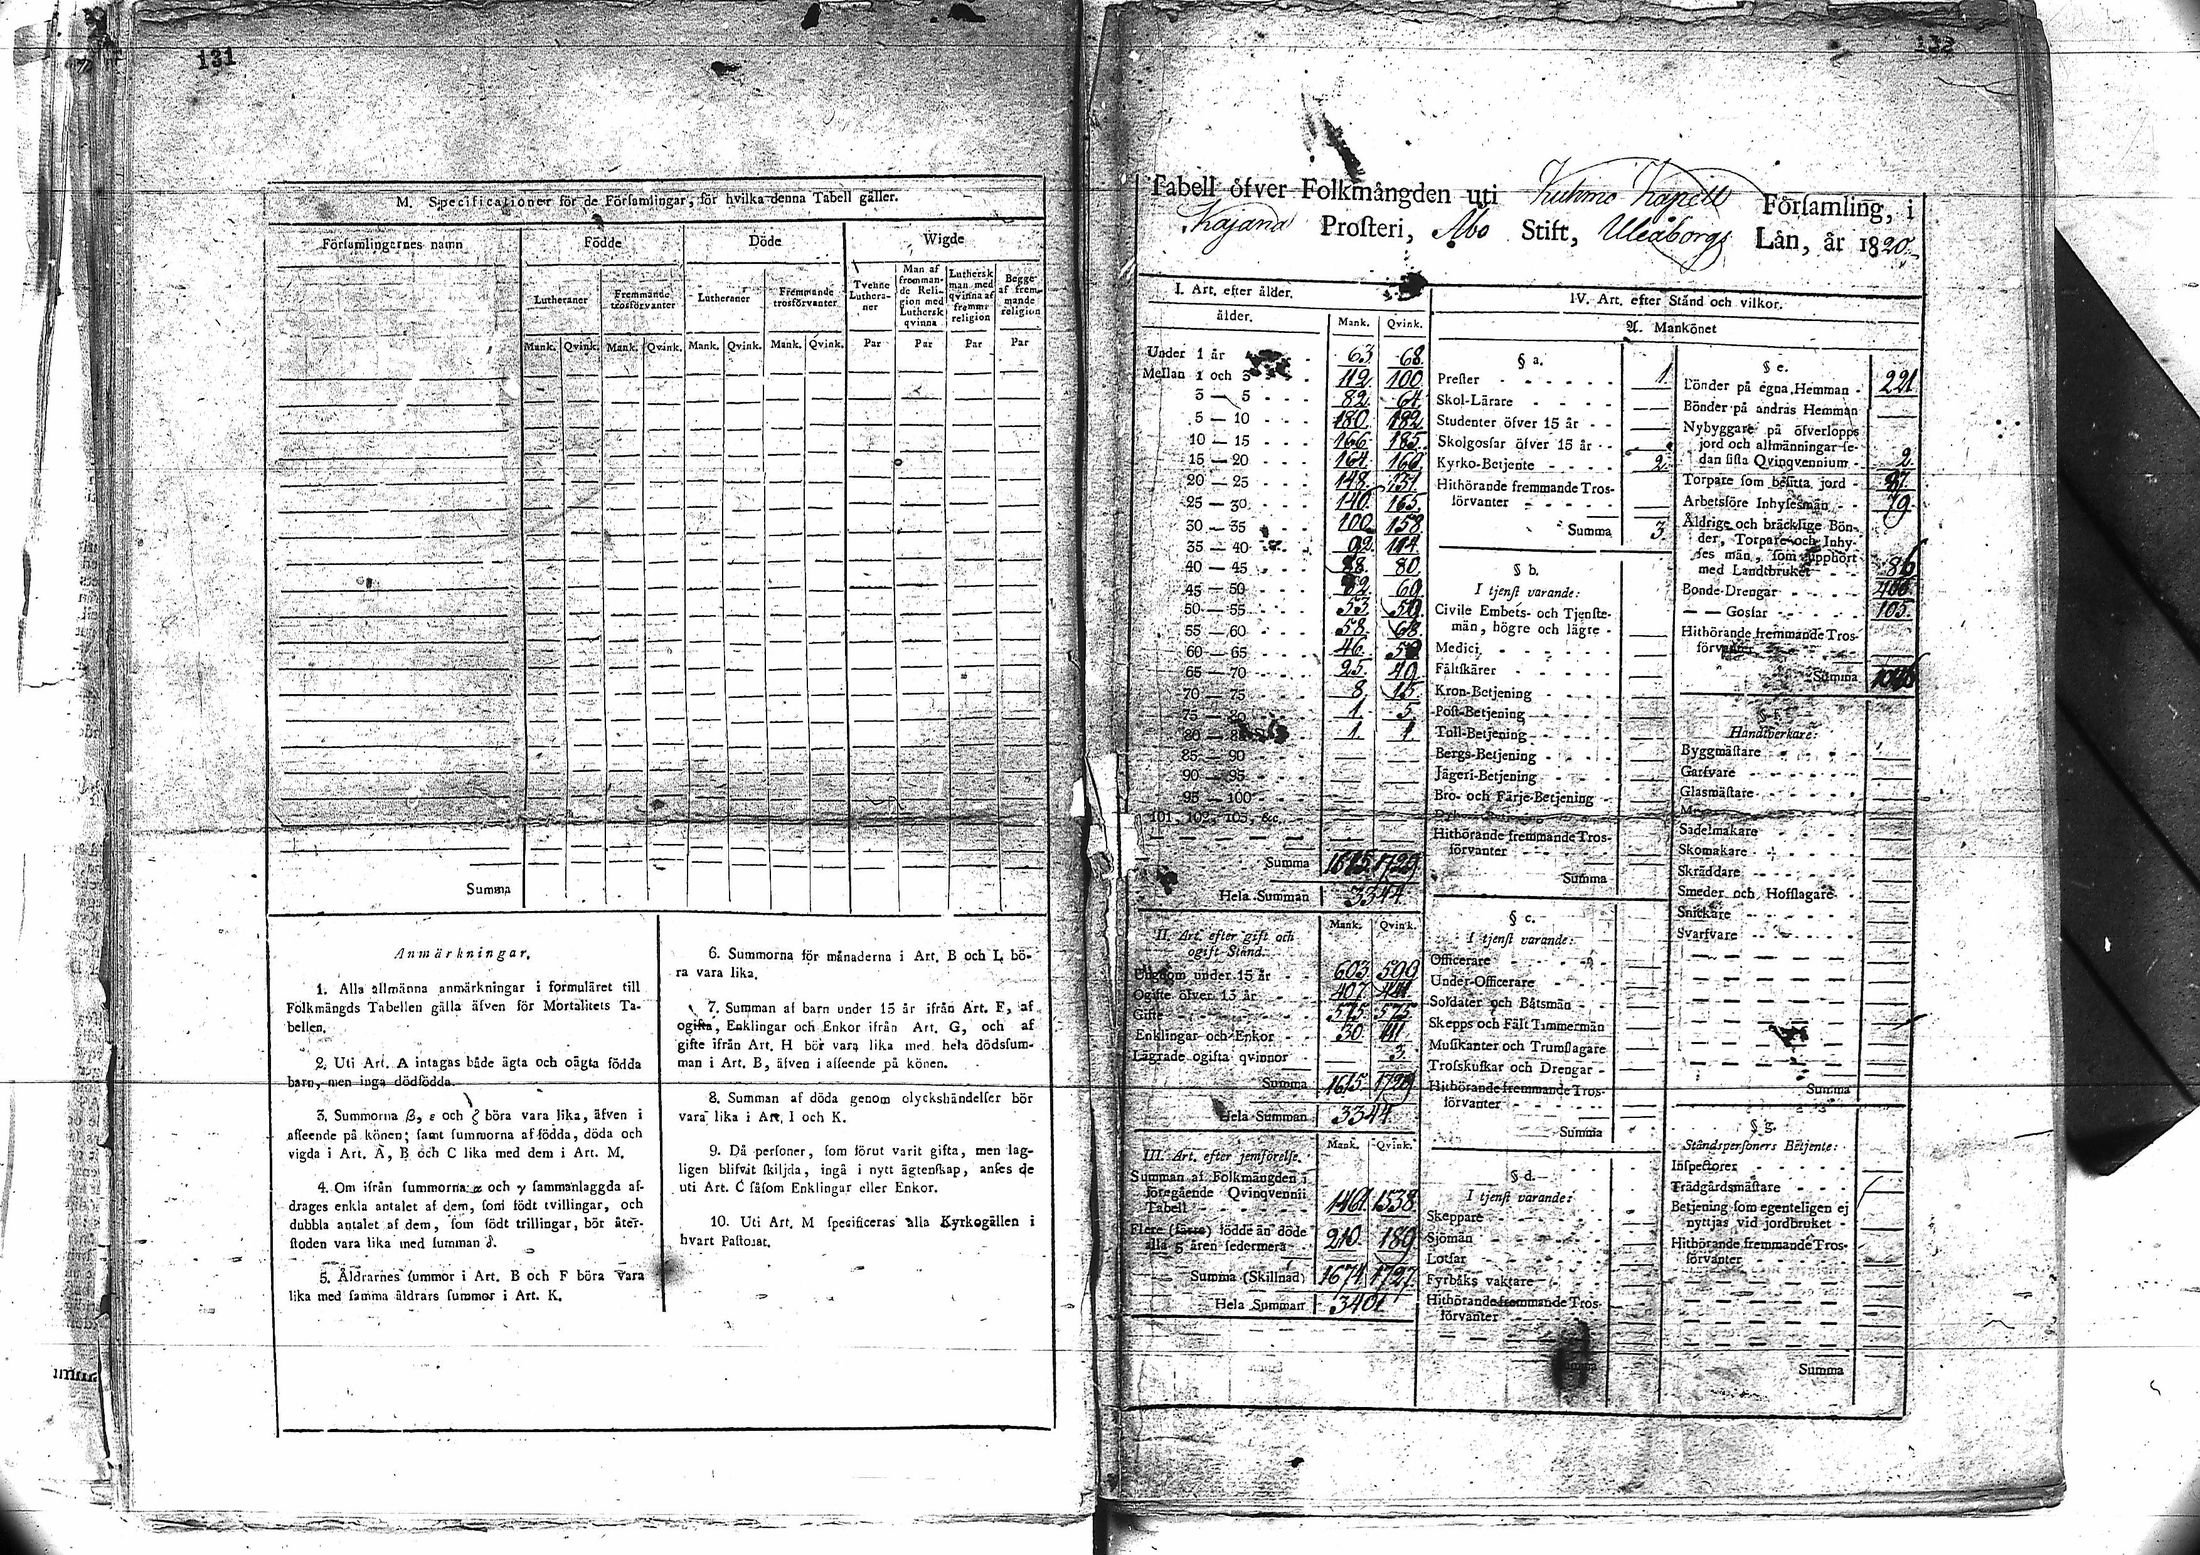 131
M. Specificationer för de Förſamlingar, för hvilka denna Tabell gäller.
Förſamlingarnes namn
Födde
Döde
Wigde
Lutheraner
Fremmande trosförvanter
Lutheraner
Fremmande trosförvanter
Tvenne Lutheraner
Man af fromman-de Reli-gion med Lutherſk qvinna
Lutherſk man med qvinna af fremm: religion
Begge af frem-mande religion
Mank. Qvink. Mank. Qvink. Mank. Qvink. Mank. Qvink. Par Par Par Par
Summa
Anmärkningar.
1. Alla allmänna anmärkningar i formuläret till
Folkmängds Tabellen gälla äfven för Mortalitets Ta-
bellen.
2. Uti Art. A intagas både ägta och oägta födda
barn, men inga dödfödda.
3. Summorna β, ε och ζ böra vara lika, äfven i
afſeende på könen; ſamt ſummorna af födda, döda och
vigda i Art. A, B och C lika med dem i Art. M.
4. Om ifrån ſummorna α och γ ſammanlaggda af-
drages enkla antalet af dem, ſom födt tvillingar, och
dubbla antalet af dem, ſom födt trillingar, bör åter-
ſtoden vara lika med ſumman δ.
5. Åldrarnes ſummor i Art. B och F böra vara
lika med ſamma åldrars ſummor i Art. K.
6. Summorna för månaderna i Art. B och L bö-
ra vara lika.
7. Summan af barn under 15 år ifrån Art. F, af
ogifta, Enklingar och Enkor ifrån Art. G, och af
gifte ifrån Art. H bör vara lika med hela dödsſum-
man i Art. B, äfven i afſeende på könen.
8. Summan af döda genom olyckshändelſer bör
vara lika i Art. I och K.
9. Då perſoner, ſom förut varit gifta, men lag-
ligen blifvit ſkiljda, ingå i nytt ägtenſkap, anſes de
uti Art. C ſåſom Enklingar eller Enkor.
10. Uti Art. M ſpecificeras alla Kyrkogällen i
hvart Paſtorat.
132
Tabell öfver Folkmängden uti Kuhmo Kapell Förſamling, i
Kajana Proſteri, Åbo Stift, Uleåborgs Län, år 1820.
I. Art. efter ålder.
ålder. Mank. Qvink.
Under 1 år 63. 68.
Mellan 1 och 3 112. 100.
3 — 5 82. 64.
5 — 10 180. 182.
10 — 15 166. 185.
15 — 20 164.
20 — 25 148. 151.
25 — 30 140. 165.
30 — 35 100. 158.
35 — 40 114.
40 — 45 88. 80.
45 — 50 69.
50 — 55 53.
55 — 60 58. 68.
60 — 65 46.
65 — 70 25. 40.
70 — 75 8. 15.
75 — 80 1. 5.
80 — 85 1. 1.
85 — 90
90 — 95
95 — 100
101, 102, 103, &c.
Summa 1615. 1729.
Hela Summan 3344.
II. Art. efter gift och ogift Stånd.
Mank. Qvink.
Ungdom under 15 år 603. 599.
Ogifte öfver 15 år 407.
Gifte 575. 575.
Enklingar och Enkor 30.
Lägrade ogifta qvinnor 3.
Summa 1615. 1729.
Hela Summan 3344.
III. Art. efter jemförelſe.
Mank. Qvink.
Summan af Folkmängden i
föregående Qvinqvennii
Tabell 1464. 1538.
Flere (färre) födde än döde
alla 5 åren ſedermera 210. 189.
Summa (Skillnad) 1674. 1727.
Hela Summan 3401.
IV. Art. efter Stånd och vilkor.
A. Mankönet
§ a.
Preſter 1.
Skol-Lärare
Studenter öfver 15 år
Skolgoſſar öfver 15 år
Kyrko-Betjente 2.
Hithörande fremmande Tros-
förvanter
Summa 3.
§ b.
I tjenſt varande:
Civile Embets- och Tjenſte-
män, högre och lägre
Medici
Fältſkärer
Kron-Betjening
Poſt-Betjening
Tull-Betjening
Bergs-Betjening
Jägeri-Betjening
Bro- och Färje-Betjening
Hithörande fremmande Tros-
förvanter
Summa
§ c.
I tjenſt varande:
Officerare
Under-Officerare
Soldater och Båtsmän
Skepps och Fält Timmermän
Muſikanter och Trumſlagare
Troſskuſkar och Drengar
Hithörande fremmande Tros-
förvanter
Summa
§ d.
I tjenſt varande:
Skeppare
Sjömän
Lotſar
Fyrbåks vaktare
Hithörande fremmande Tros-
förvanter
Summa
§ e.
Bönder på egna Hemman 221.
Bönder på andras Hemman
Nybyggare på öfverlopps
jord och allmänningar ſe-
dan ſiſta Qvinqvennium 2.
Torpare ſom beſitta jord 87.
Arbetsföre Inhyſesmän 79.
Åldrige och bräcklige Bön-
der, Torpare och Inhy-
ſes män, ſom upphört
med Landtbruket 86
Bonde-Drengar
— — Goſſar 105.
Hithörande fremmande Tros-
förvanter
Summa
§ f.
Handtverkare:
Byggmäſtare
Garfvare
Glasmäſtare
Sadelmakare
Skomakare
Skräddare
Smeder och Hofſlagare
Snickare
Svarfvare
Summa
§ g.
Ståndsperſoners Betjente:
Inſpectorer
Trädgårdsmäſtare
Betjening ſom egenteligen ej
nyttjas vid jordbruket
Hithörande fremmande Tros-
förvanter
Summa